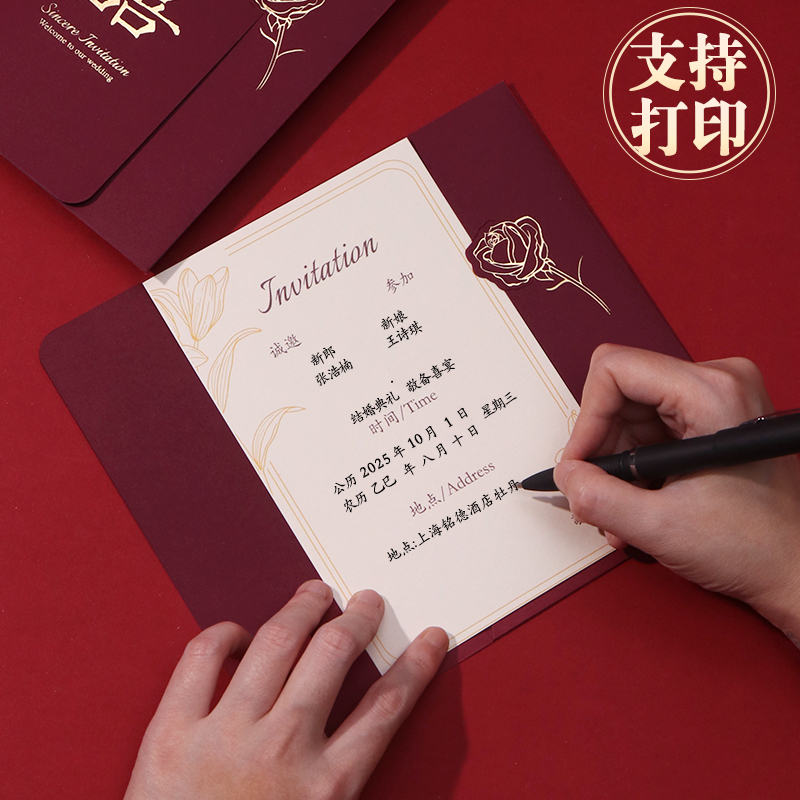 Sincere Invitation
Welcome to our wedding
支持
打印
Invitation
参加
诚邀
新郎
张浩楠
新娘
王诗琪
结婚典礼 敬备喜宴
时间/Time
公历 2025 年 10 月 1 日 星期三
农历 乙巳 年 八 月 十 日
地点/Address
地点:上海铭德酒店牡丹